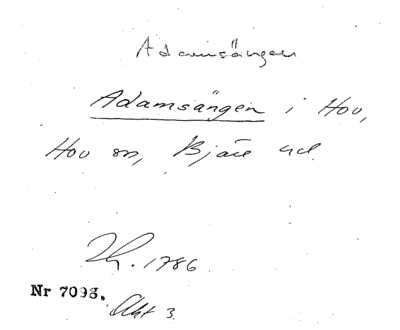 Adamsängen
Adamsängen i Hov,
Hov sn, Bjäre hd.
Lh. 1786
Nr 7093.
Akt 3.